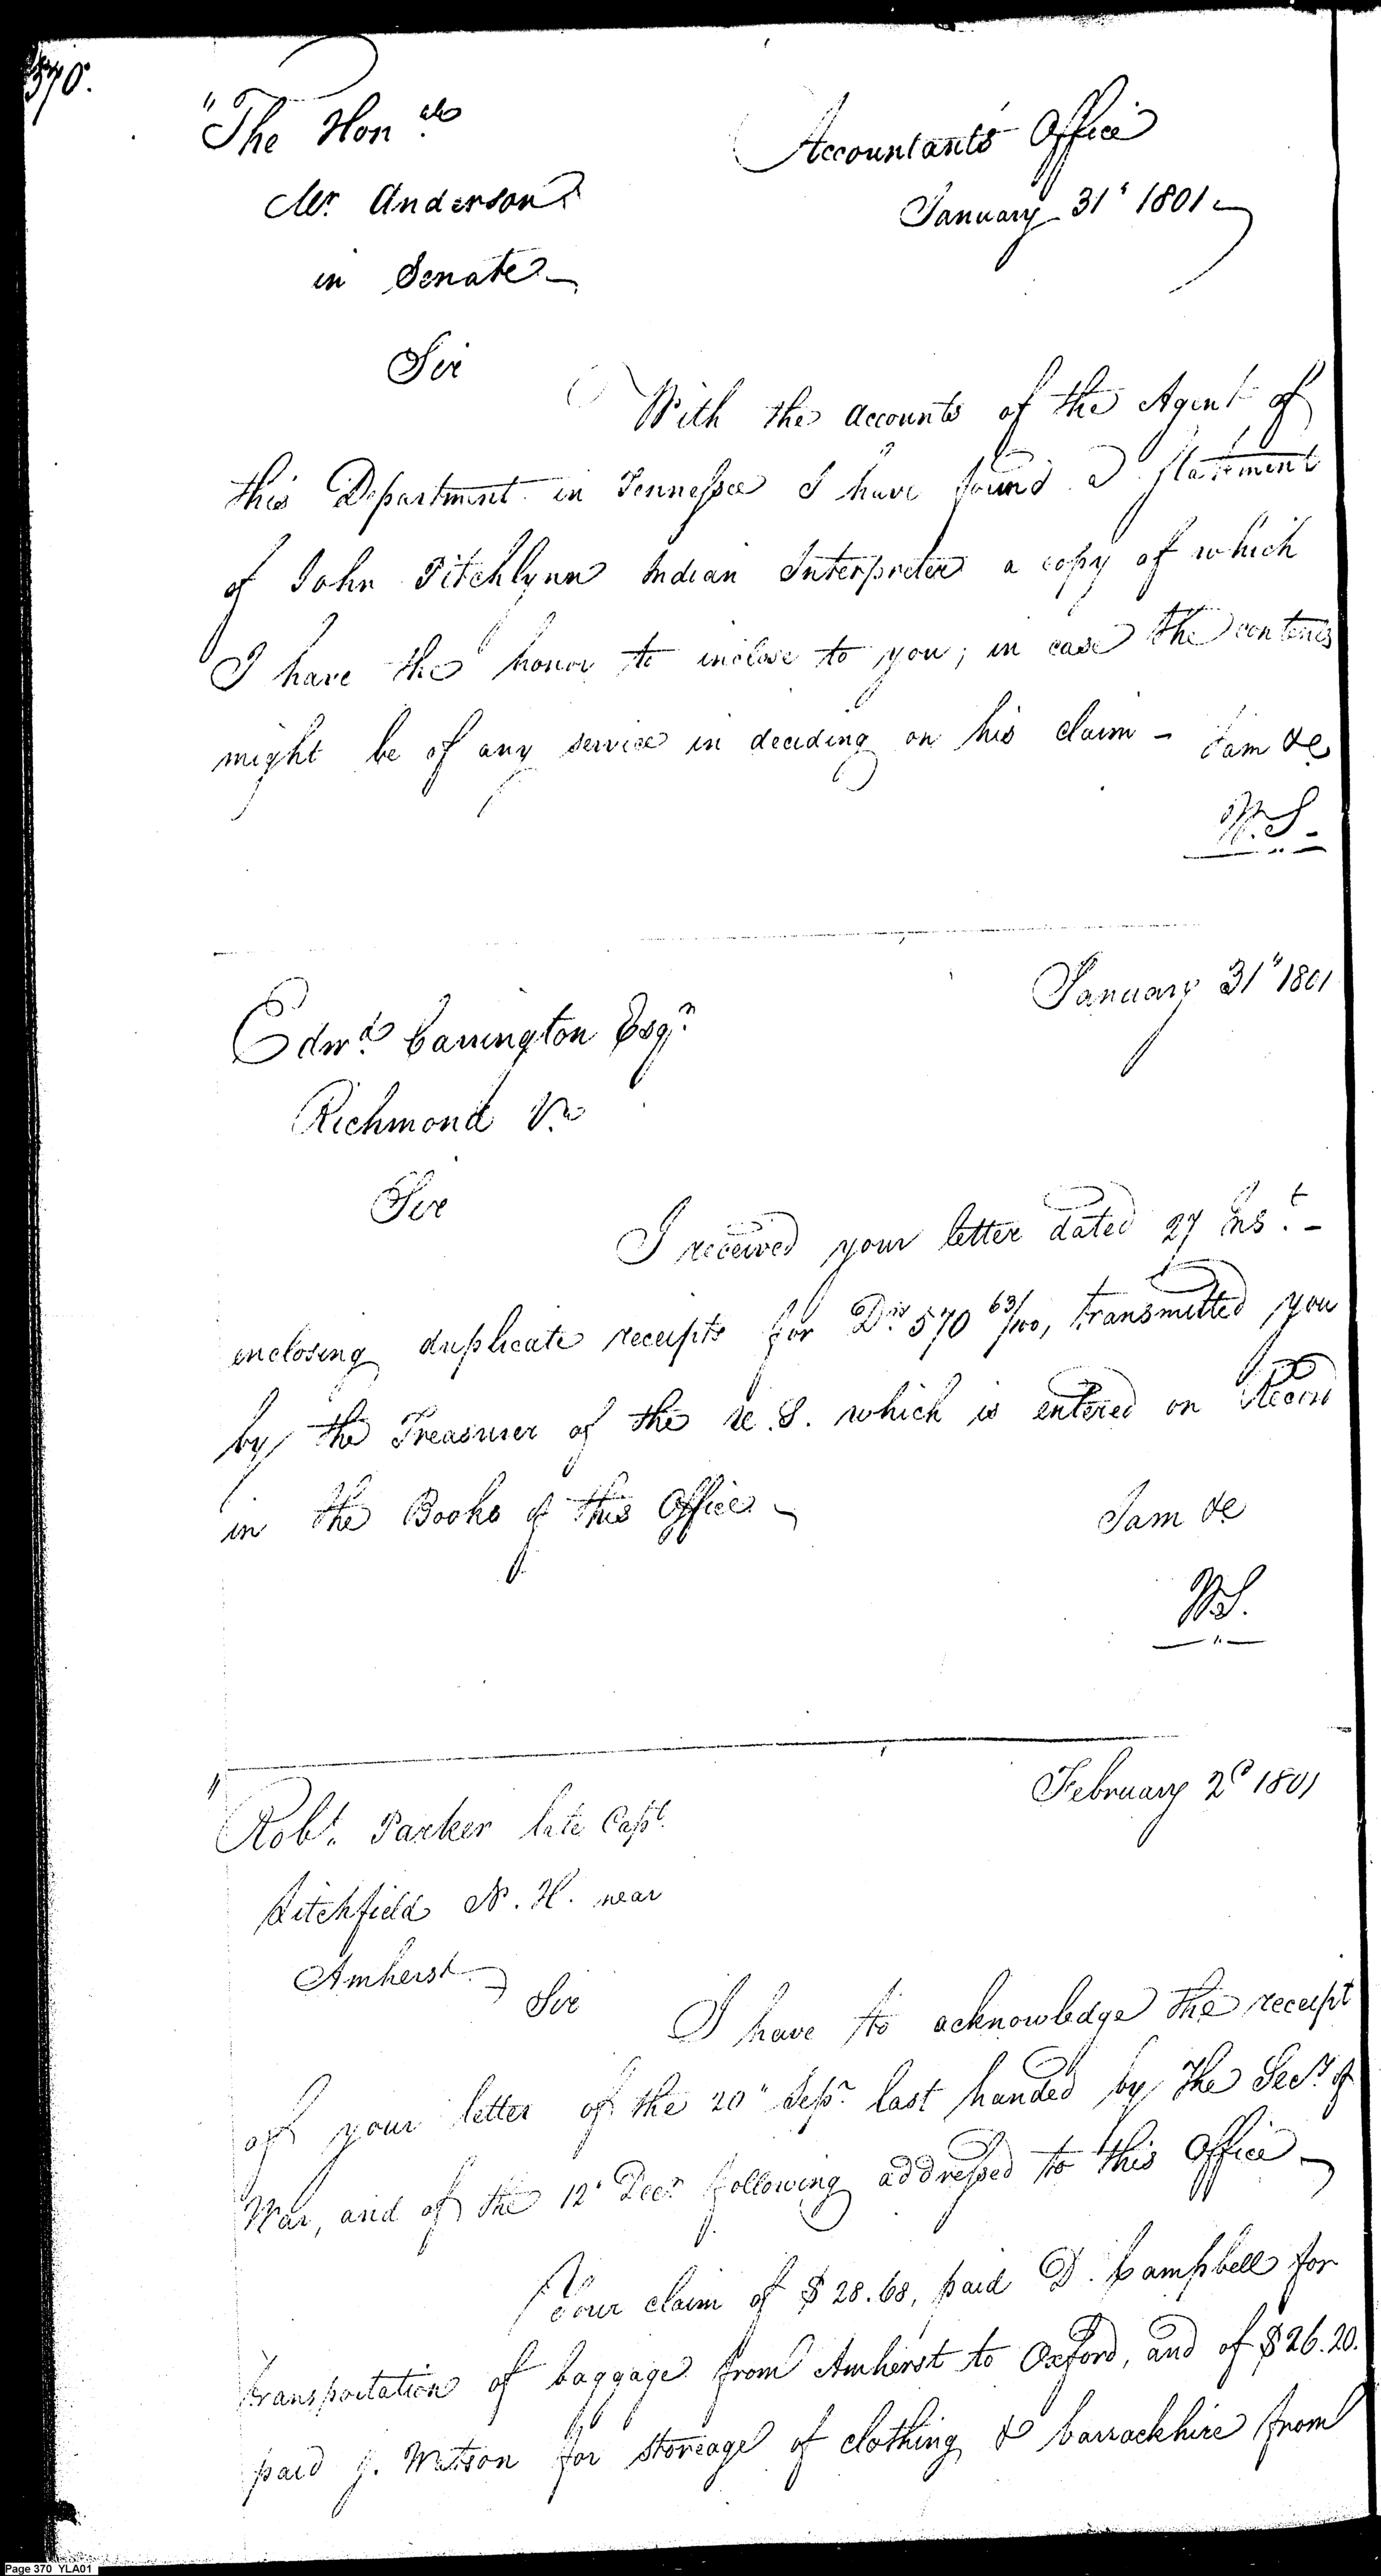 370.
"The Hon.ble
Accountants Office
Mr. Anderson
January 31st 1801
in Senate
Sir
With the accounts of the Agent of
this Department in Tennessee I have found a statement
of John Pitchlynn Indian Interpreter a copy of which
I have the honor to inclose to you; in case the contents
might be of any service in deciding on his claim – I am &c
W.S –
January 31" 1801
Edwd. Carrington Esqr.
Richmond Va.
Sir
I received your letter dated 27 Inst. –
enclosing duplicate receipts for Drs. 570 63/100, transmitted you
by the Treasurer of the U.S. which is entered on Record
in the Books of this Office –
I am &c
W.S.
February 2d 1801
" Robt. Parker late Capt.
Litchfield N.H. near
Amherst
Sir I have to acknowledge the receipt
of your letter of the 20" Sepr. last handed by the Secy. of
War, and of the 12" Decr. following addressed to this Office –
Your claim of $28.68, paid D. Campbell for
transportation of baggage from Amherst to Oxford, and of $26.20.
paid J. Watson for storeage of clothing & barrackhire from
Page 370 YLA01